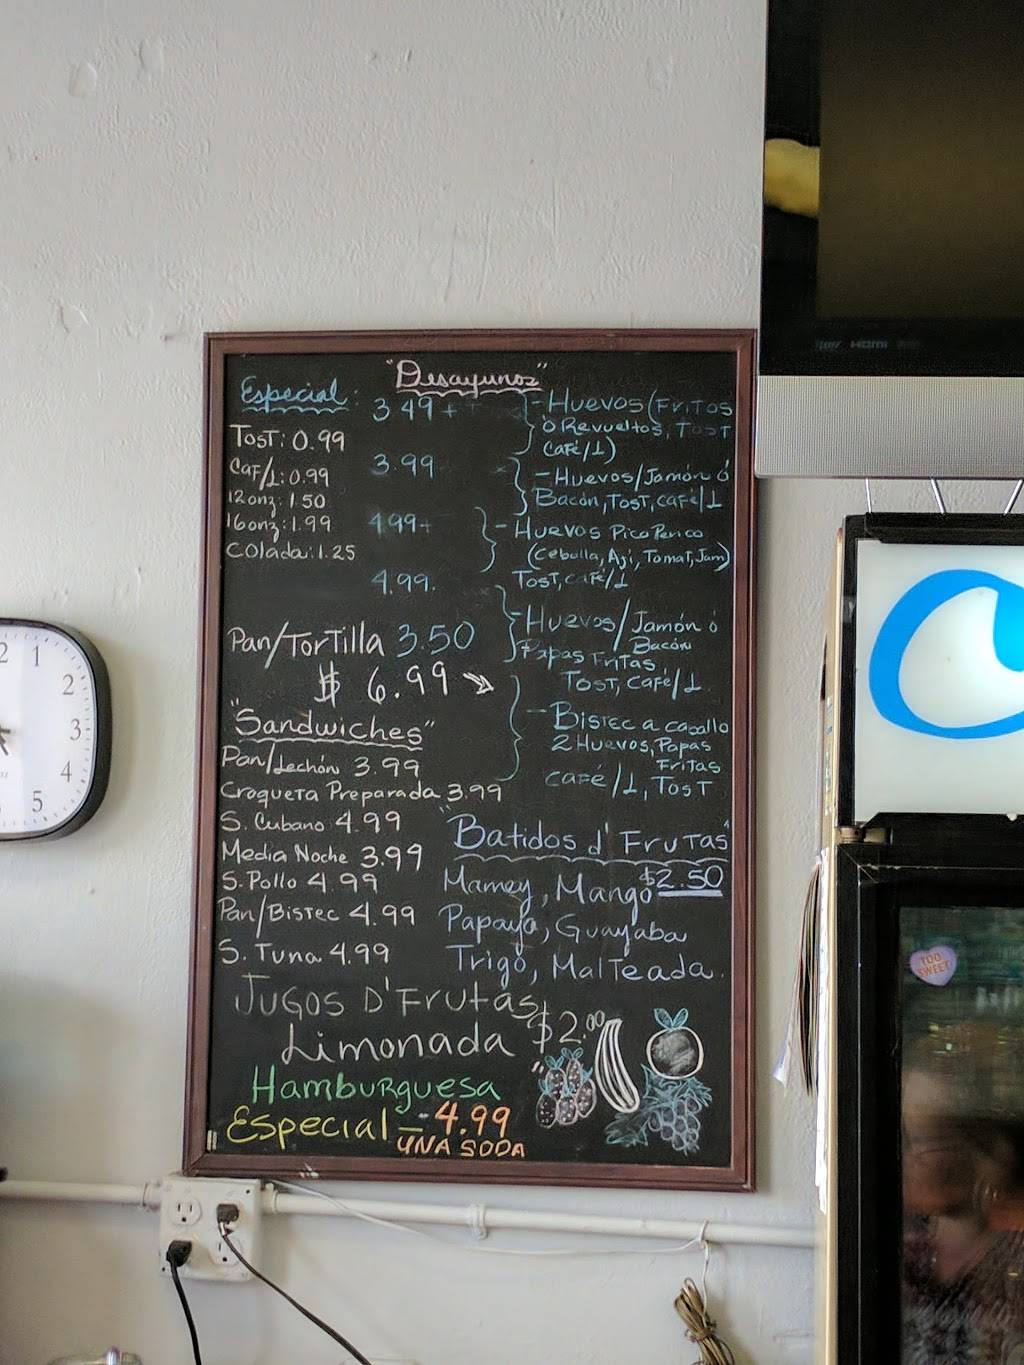 "Desayunos"
Especial:
3.49+
Tost: 0.99
Caf/L: 0.99
12onz: 1.50
16onz: 1.99
Colada: 1.25
3.99
4.99+
4.99.
- Huevos (Fritos
ó Revueltos, Tost
Café/L)
- Huevos/Jamón ó
Bacón, Tost, café/L
- Huevos Pico Perico
(Cebolla, Aji, Tomat, Jam)
Tost, café/L
- Huevos/Jamón ó
Bacón
Papas Fritas
Tost, Café/L.
- Bistec a caballo
2 Huevos, Papas
Fritas
café/L, Tost
Pan/Tortilla 3.50
$ 6.99
"Sandwiches"
Pan/Lechón 3.99
Croqueta Preparada 3.99
S. Cubano 4.99
Media Noche 3.99
S. Pollo 4.99
Pan/Bistec 4.99
S. Tuna 4.99
"Batidos d' Frutas"
$2.50
Mamey, Mango
Papaya, Guayaba
Trigo, Malteada.
Jugos D'Frutas
Limonada $2.00
Hamburguesa
Especial - 4.99
UNA SODA
HDMI
TOO
SWEET
2 1
2
3
4
5